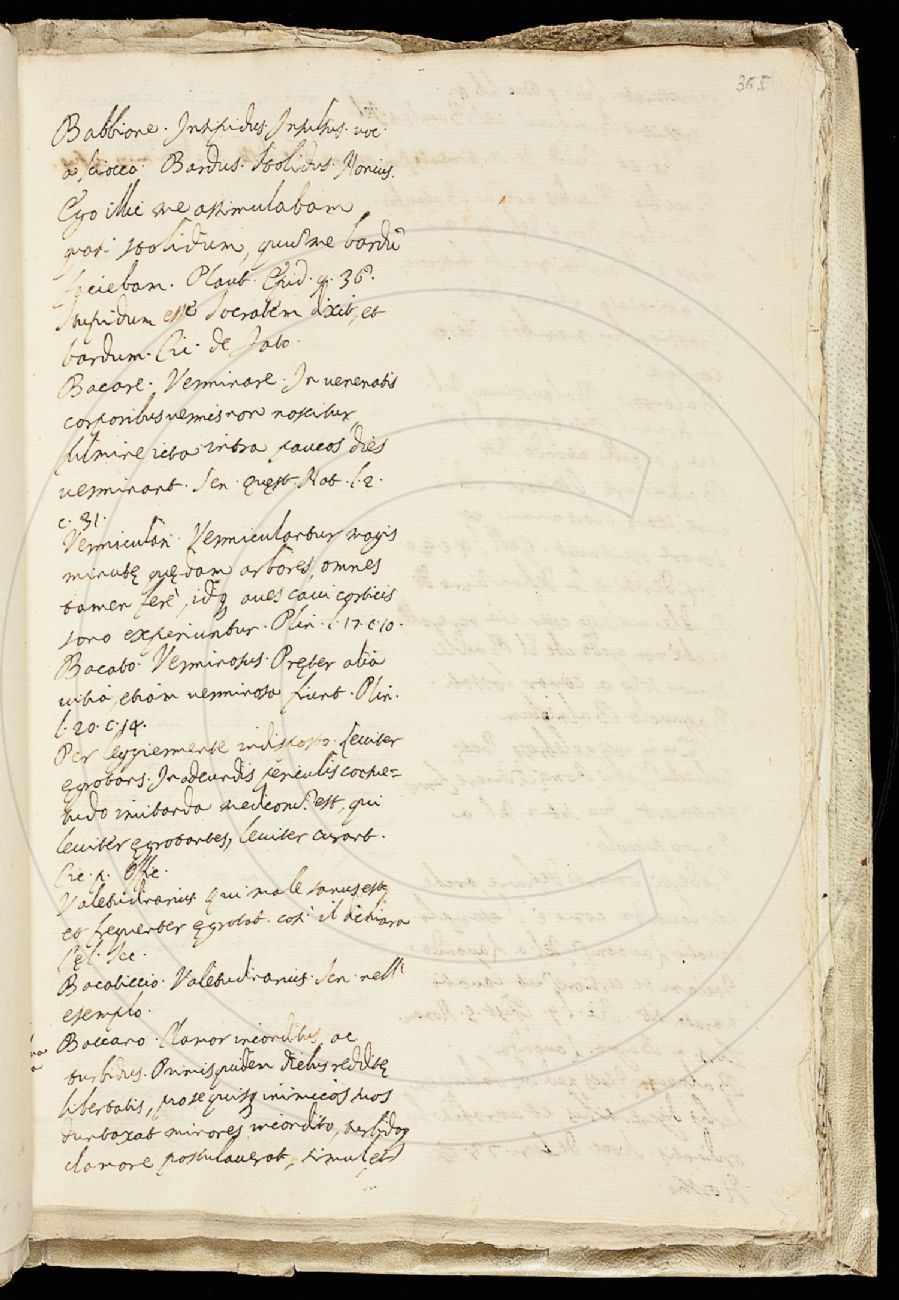 365
Babbione. Insipidus. Insulsus. voc.
a sciocco. Bardus. Stolidus. Nonius.
Ego illic me assimulabam
quasi stolidum, quũ me bardũ
faciebam. Plaut. Epid. 36.
Stupidum esse Socratem dixit, et
bardum. Cic. de Fato.
Bacare. Verminare. In venenatis
corporibus vermis non nascitur
fulmine icta intra paucos dies
verminant. Sen. quęst. Nat. l. 2.
c. 31.
Vermiculari. Vermiculantur magis
minusę quędam arbores, omnes
tamen ferè, idq; aues caui corticis
sono experiuntur. Plin. l. 17. c. 10.
Bacato. Verminosus. Pręter alia
uitia, etiam uerminosa fiunt. Plin.
l. 20. c. 14.
Per leggiermente indisposto. Leuiter
ęgrotans. In adeundis periculis consue=
tudo imitanda medicorũ est, qui
leuiter ęgrotantes, leuiter curant.
Cic. p. Offic.
Valetudinarius qui male sanus est,
et frequenter ęgrotat. così il dichiara
Cęl. Sec.
Bacaticcio. Valetudinarius. Sen. nell'
esempio.
Baccano. Clamor inconditus, ac
turbidus. Primis quidem diebus redditę
libertatis, pro se quisq; inimicos suos
duntaxat minores, incondito, turbidoq;
clamore postulauerat, simul, et